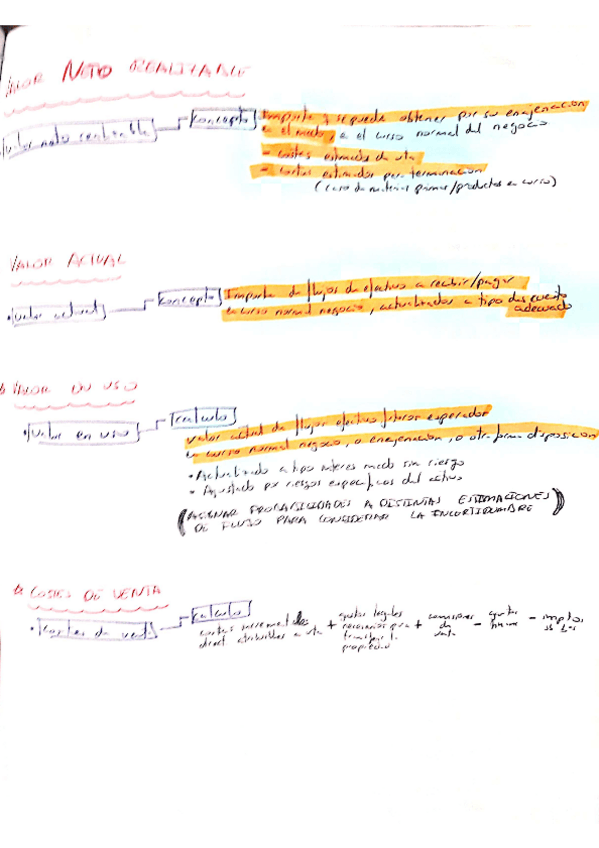 VALOR NETO REALIZABLE
valor neto realizable
Concepto
Importe q se puede obtener por su enajenación
en el mcdo, en el curso normal del negocio
- costes estimados de vta
- costes estimados para terminación
(caso de materias primas/productos en curso)
VALOR ACTUAL
• valor actual
Concepto
Importe de flujos de efectivo a recibir/pagar
en curso normal negocio, actualizados a tipo descuento
adecuado
VALOR EN USO
• valor en uso
Calculo
valor actual de flujos efectivo futuros esperados
en curso normal negocio, o enajenación, o otra forma disposición
• Actualizado a tipo interes mcdo sin riesgo
• Ajustado por riesgos específicos del activo
(ASIGNAR PROBABILIDADES A DISTINTAS ESTIMACIONES
DE FLUJO PARA CONSIDERAR LA INCERTIDUMBRE)
COSTES DE VENTA
• Costes de venta
Calculo
costes incrementales
direct atribuibles a vta
+ gastos legales
necesarios para
transferir la
propiedad
+ comisiones
de
venta
- gastos
- imptos